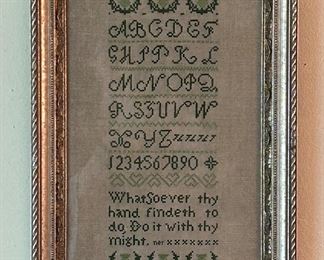 ABCDEF
GHIJKL
MNOPQ
RSTUVW
XYZ
1234567890
Whatsoever thy
hand findeth to
do, Do it with thy
might. ner xxxxxxx